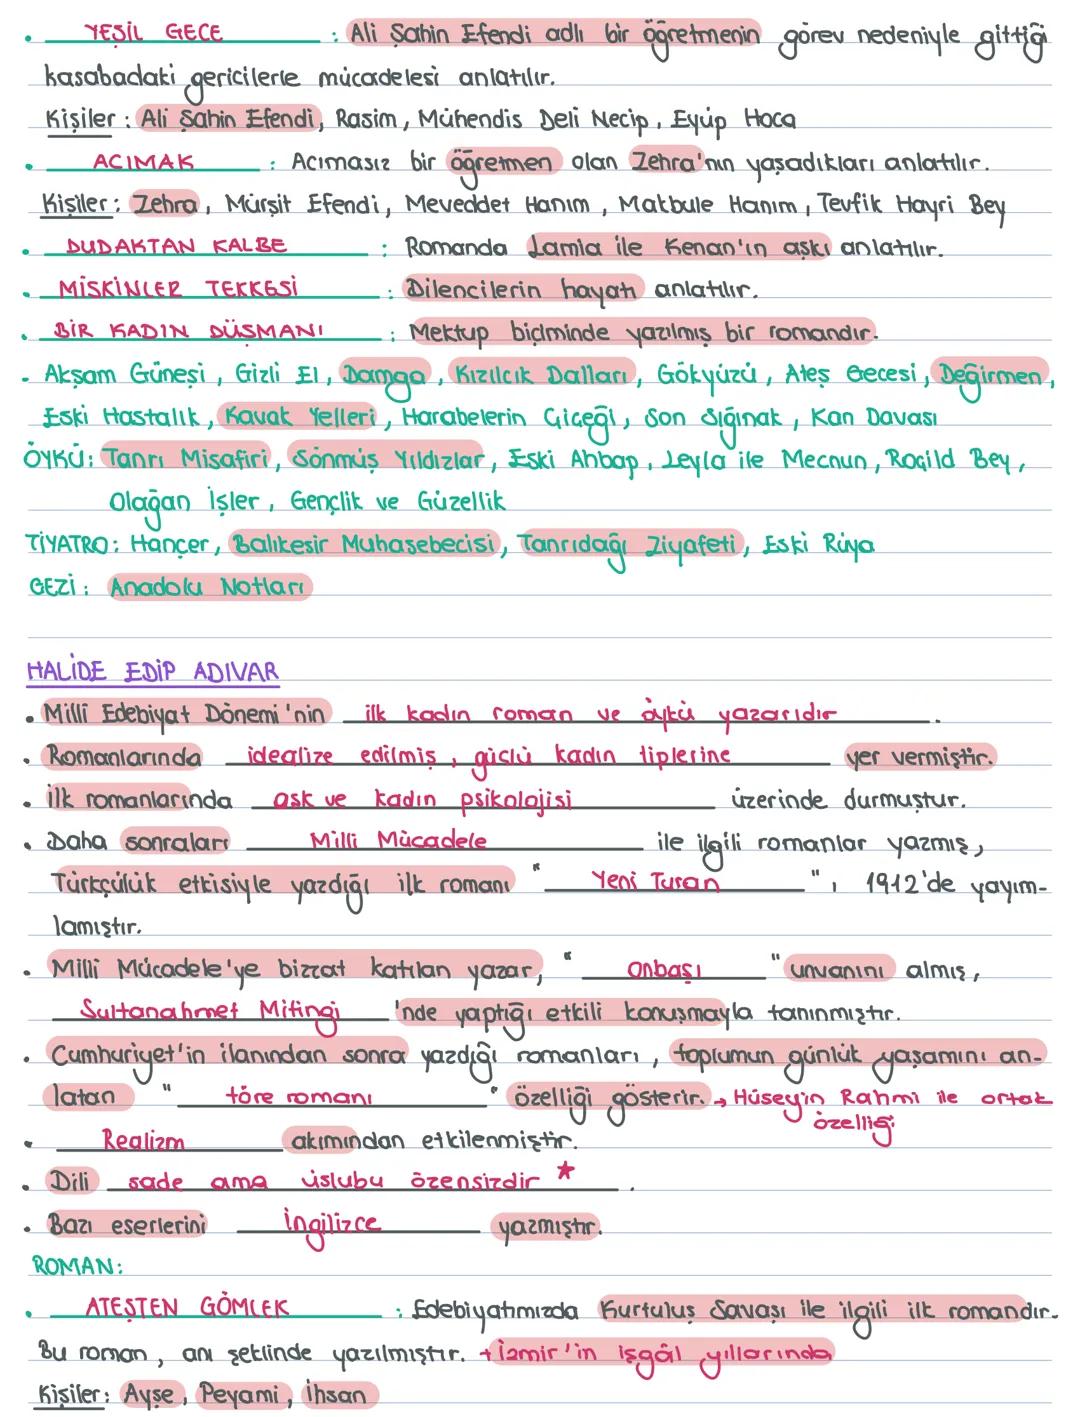 • YEŞİL GECE : Ali Şahin Efendi adlı bir öğretmenin görev nedeniyle gittiği
kasabadaki gericilerle mücadelesi anlatılır.
Kişiler : Ali Şahin Efendi, Rasim, Mühendis Deli Necip, Eyüp Hoca
• ACIMAK : Acımasız bir öğretmen olan Zehra'nın yaşadıkları anlatılır.
Kişiler : Zehra, Mürşit Efendi, Meveddet Hanım, Makbule Hanım, Tevfik Hayri Bey
• DUDAKTAN KALBE : Romanda Lamia ile Kenan'ın aşkı anlatılır.
• MİSKİNLER TEKKESİ : Dilencilerin hayatı anlatılır.
• BİR KADIN DÜŞMANI : Mektup biçiminde yazılmış bir romandır.
• Akşam Güneşi, Gizli El, Damga, Kızılcık Dalları, Gökyüzü, Ateş Gecesi, Değirmen,
Eski Hastalık, Kavak Yelleri, Harabelerin Çiçeği, Son Sığınak, Kan Davası
ÖYKÜ: Tanrı Misafiri, Sönmüş Yıldızlar, Eski Ahbap, Leyla ile Mecnun, Roçild Bey,
Olağan İşler, Gençlik ve Güzellik
TİYATRO: Hançer, Balıkesir Muhasebecisi, Tanrıdağı Ziyafeti, Eski Rüya
GEZİ: Anadolu Notları
HALİDE EDİP ADIVAR
• Milli Edebiyat Dönemi'nin ilk kadın roman ve öykü yazarıdır.
• Romanlarında idealize edilmiş, güçlü kadın tiplerine yer vermiştir.
• İlk romanlarında aşk ve kadın psikolojisi üzerinde durmuştur.
• Daha sonraları Milli Mücadele ile ilgili romanlar yazmış,
Türkçülük etkisiyle yazdığı ilk romanı "Yeni Turan", 1912'de yayım-
lamıştır.
• Milli Mücadele'ye bizzat katılan yazar, "onbaşı" unvanını almış,
Sultanahmet Mitingi'nde yaptığı etkili konuşmayla tanınmıştır.
• Cumhuriyet'in ilanından sonra yazdığı romanları, toplumun günlük yaşamını an-
latan "töre romanı" özelliği gösterir. → Hüseyin Rahmi ile ortak
özelliği
• Realizm akımından etkilenmiştir.
• Dili sade ama üslubu özensizdir ★.
• Bazı eserlerini İngilizce yazmıştır.
ROMAN:
• ATEŞTEN GÖMLEK : Edebiyatımızda Kurtuluş Savaşı ile ilgili ilk romandır.
Bu roman, anı şeklinde yazılmıştır. + İzmir'in işgâl yıllarında
Kişiler: Ayşe, Peyami, İhsan